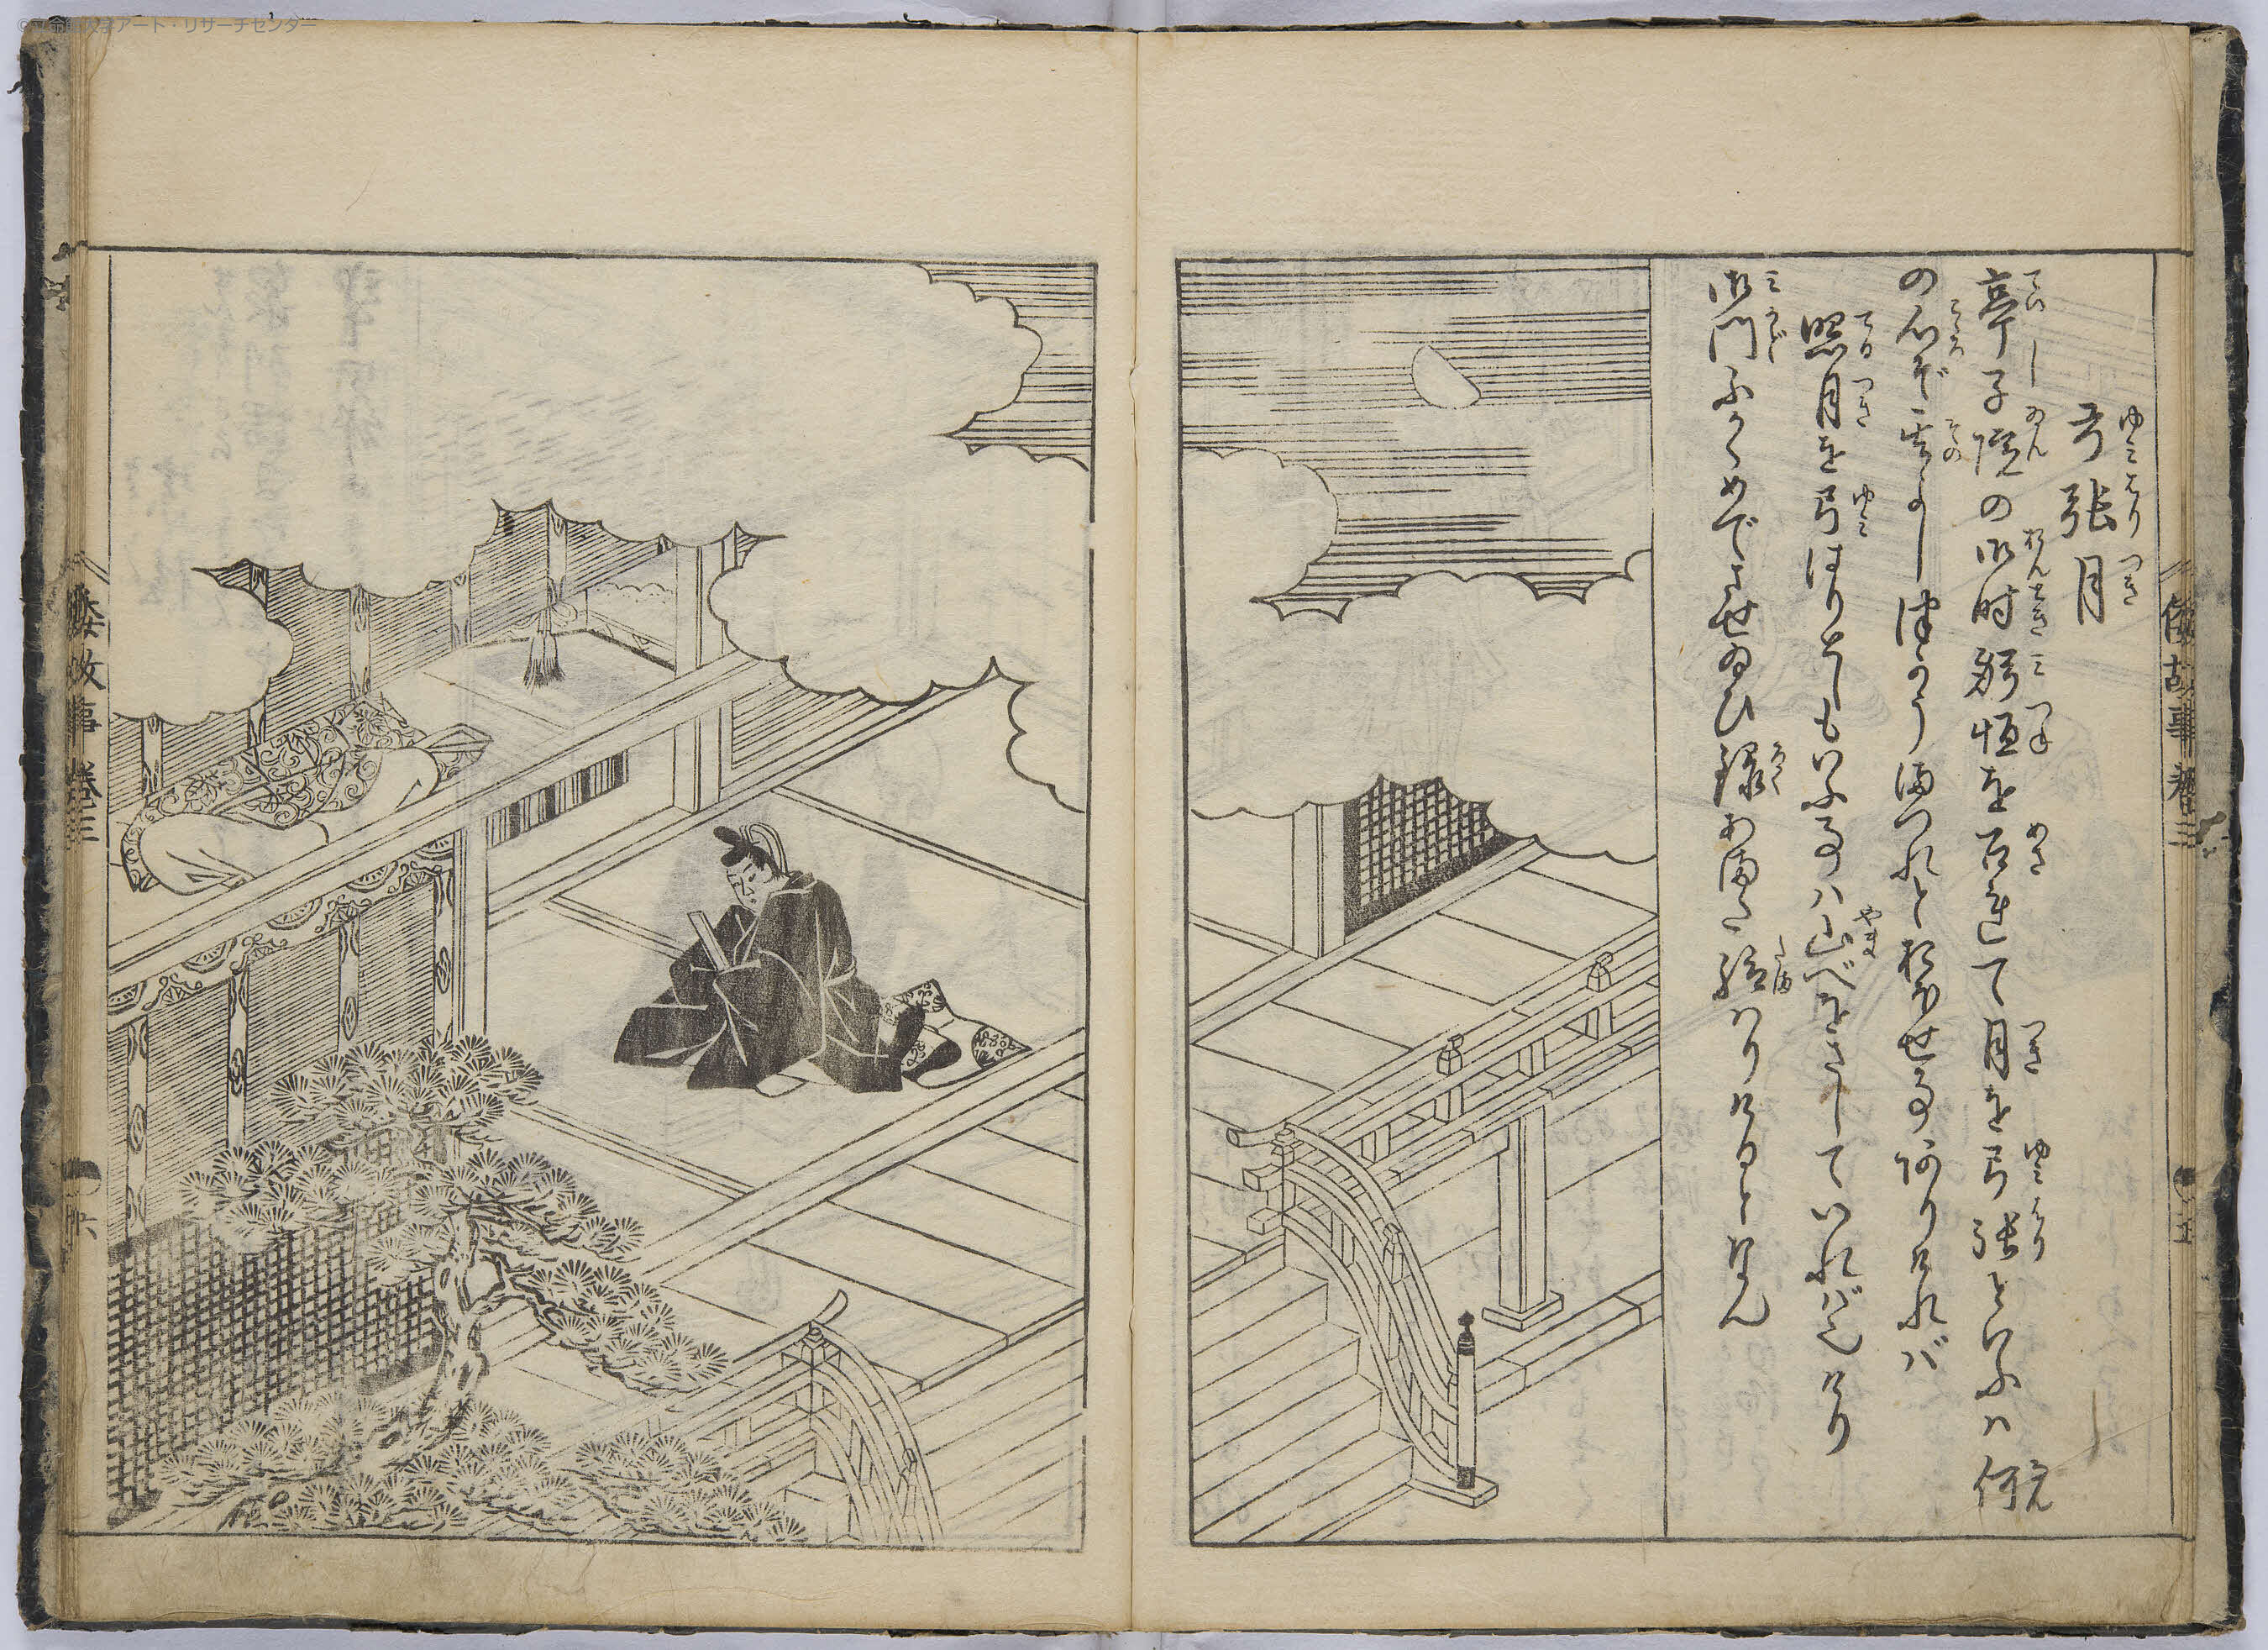 弓張月
亭子院の御時躬恒を召れて月を弓張といふハ何
の心ぞ其よしつかうまつれとおほせ事ありけれバ
照月を弓はりとしもいふ事ハ山べをさしていれバなりけり
御門ふかくめでさせ給ひ禄あまた給ハりけるとなん
倭故事 巻三
五
倭故事 巻三
六